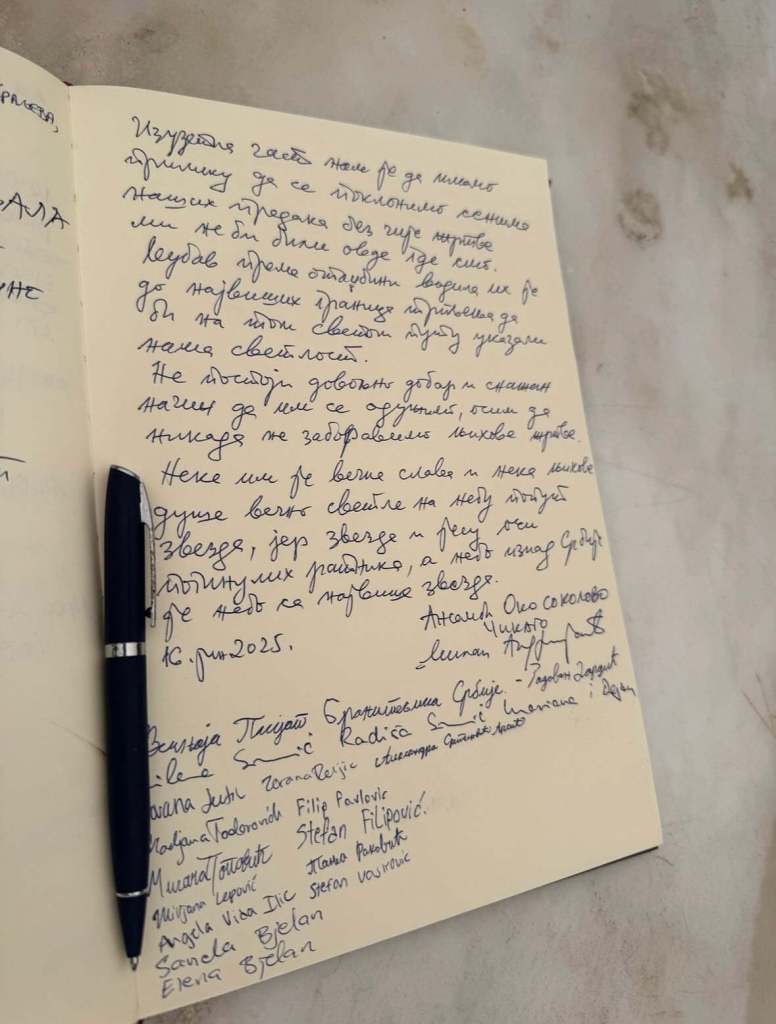 РАЉЕВА,
АЛА
НЕ
Изузетна част нам је да имамо
прилику да се поклонимо сенима
наших предака без чије жртве
ми не би били овде где смо.
Љубав према отаџбини водила их је
до највиших граница трпљења да
би на том светом путу указали
нама светлост.
Не постоји довољно добар и снажан
начин да им се одужимо, осим да
никада не заборавимо њихове жртве.
Нека им је вечна слава и нека њихове
душе вечно светле на небу попут
звезда, јер звезде и јесу очи
погинулих ратника, а небо изнад Србије
је небо са највише звезда.
16. јун 2025.
Ансамбл Око соколово
Чикаго
Милан
Пијат Бранитељима Србије. - Радован
Radiča Mariana i Dejan
Zorana Александра
Todorovich Filip Pavlovic
Милана Поповић Stefan Filipović.
Mirjana Lepović Тања Раковић
Angela Vida Ilic Stefan
Sanela Bjelan
Elena Bjelan